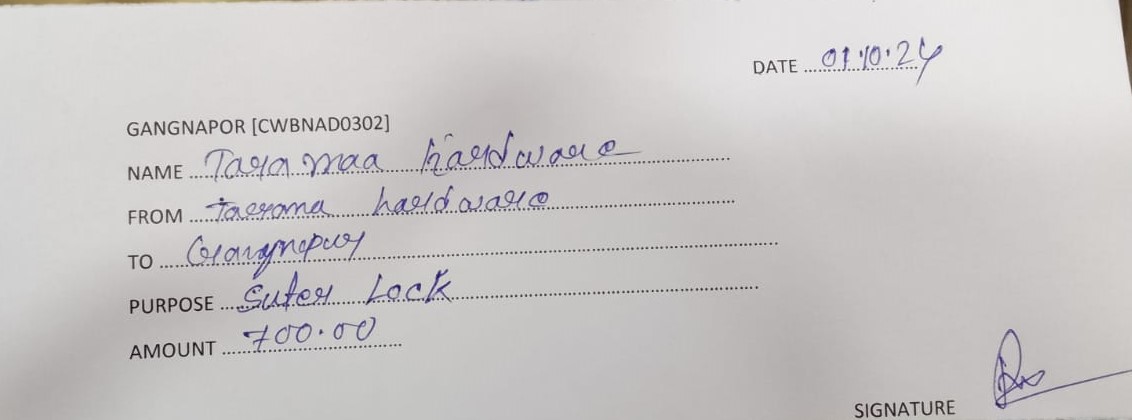 DATE 01.10.24
GANGNAPOR [CWBNAD0302]
NAME Tara maa hardware
FROM Tarama hardware
TO Gangnapur
PURPOSE Suter Lock
AMOUNT 700.00
SIGNATURE